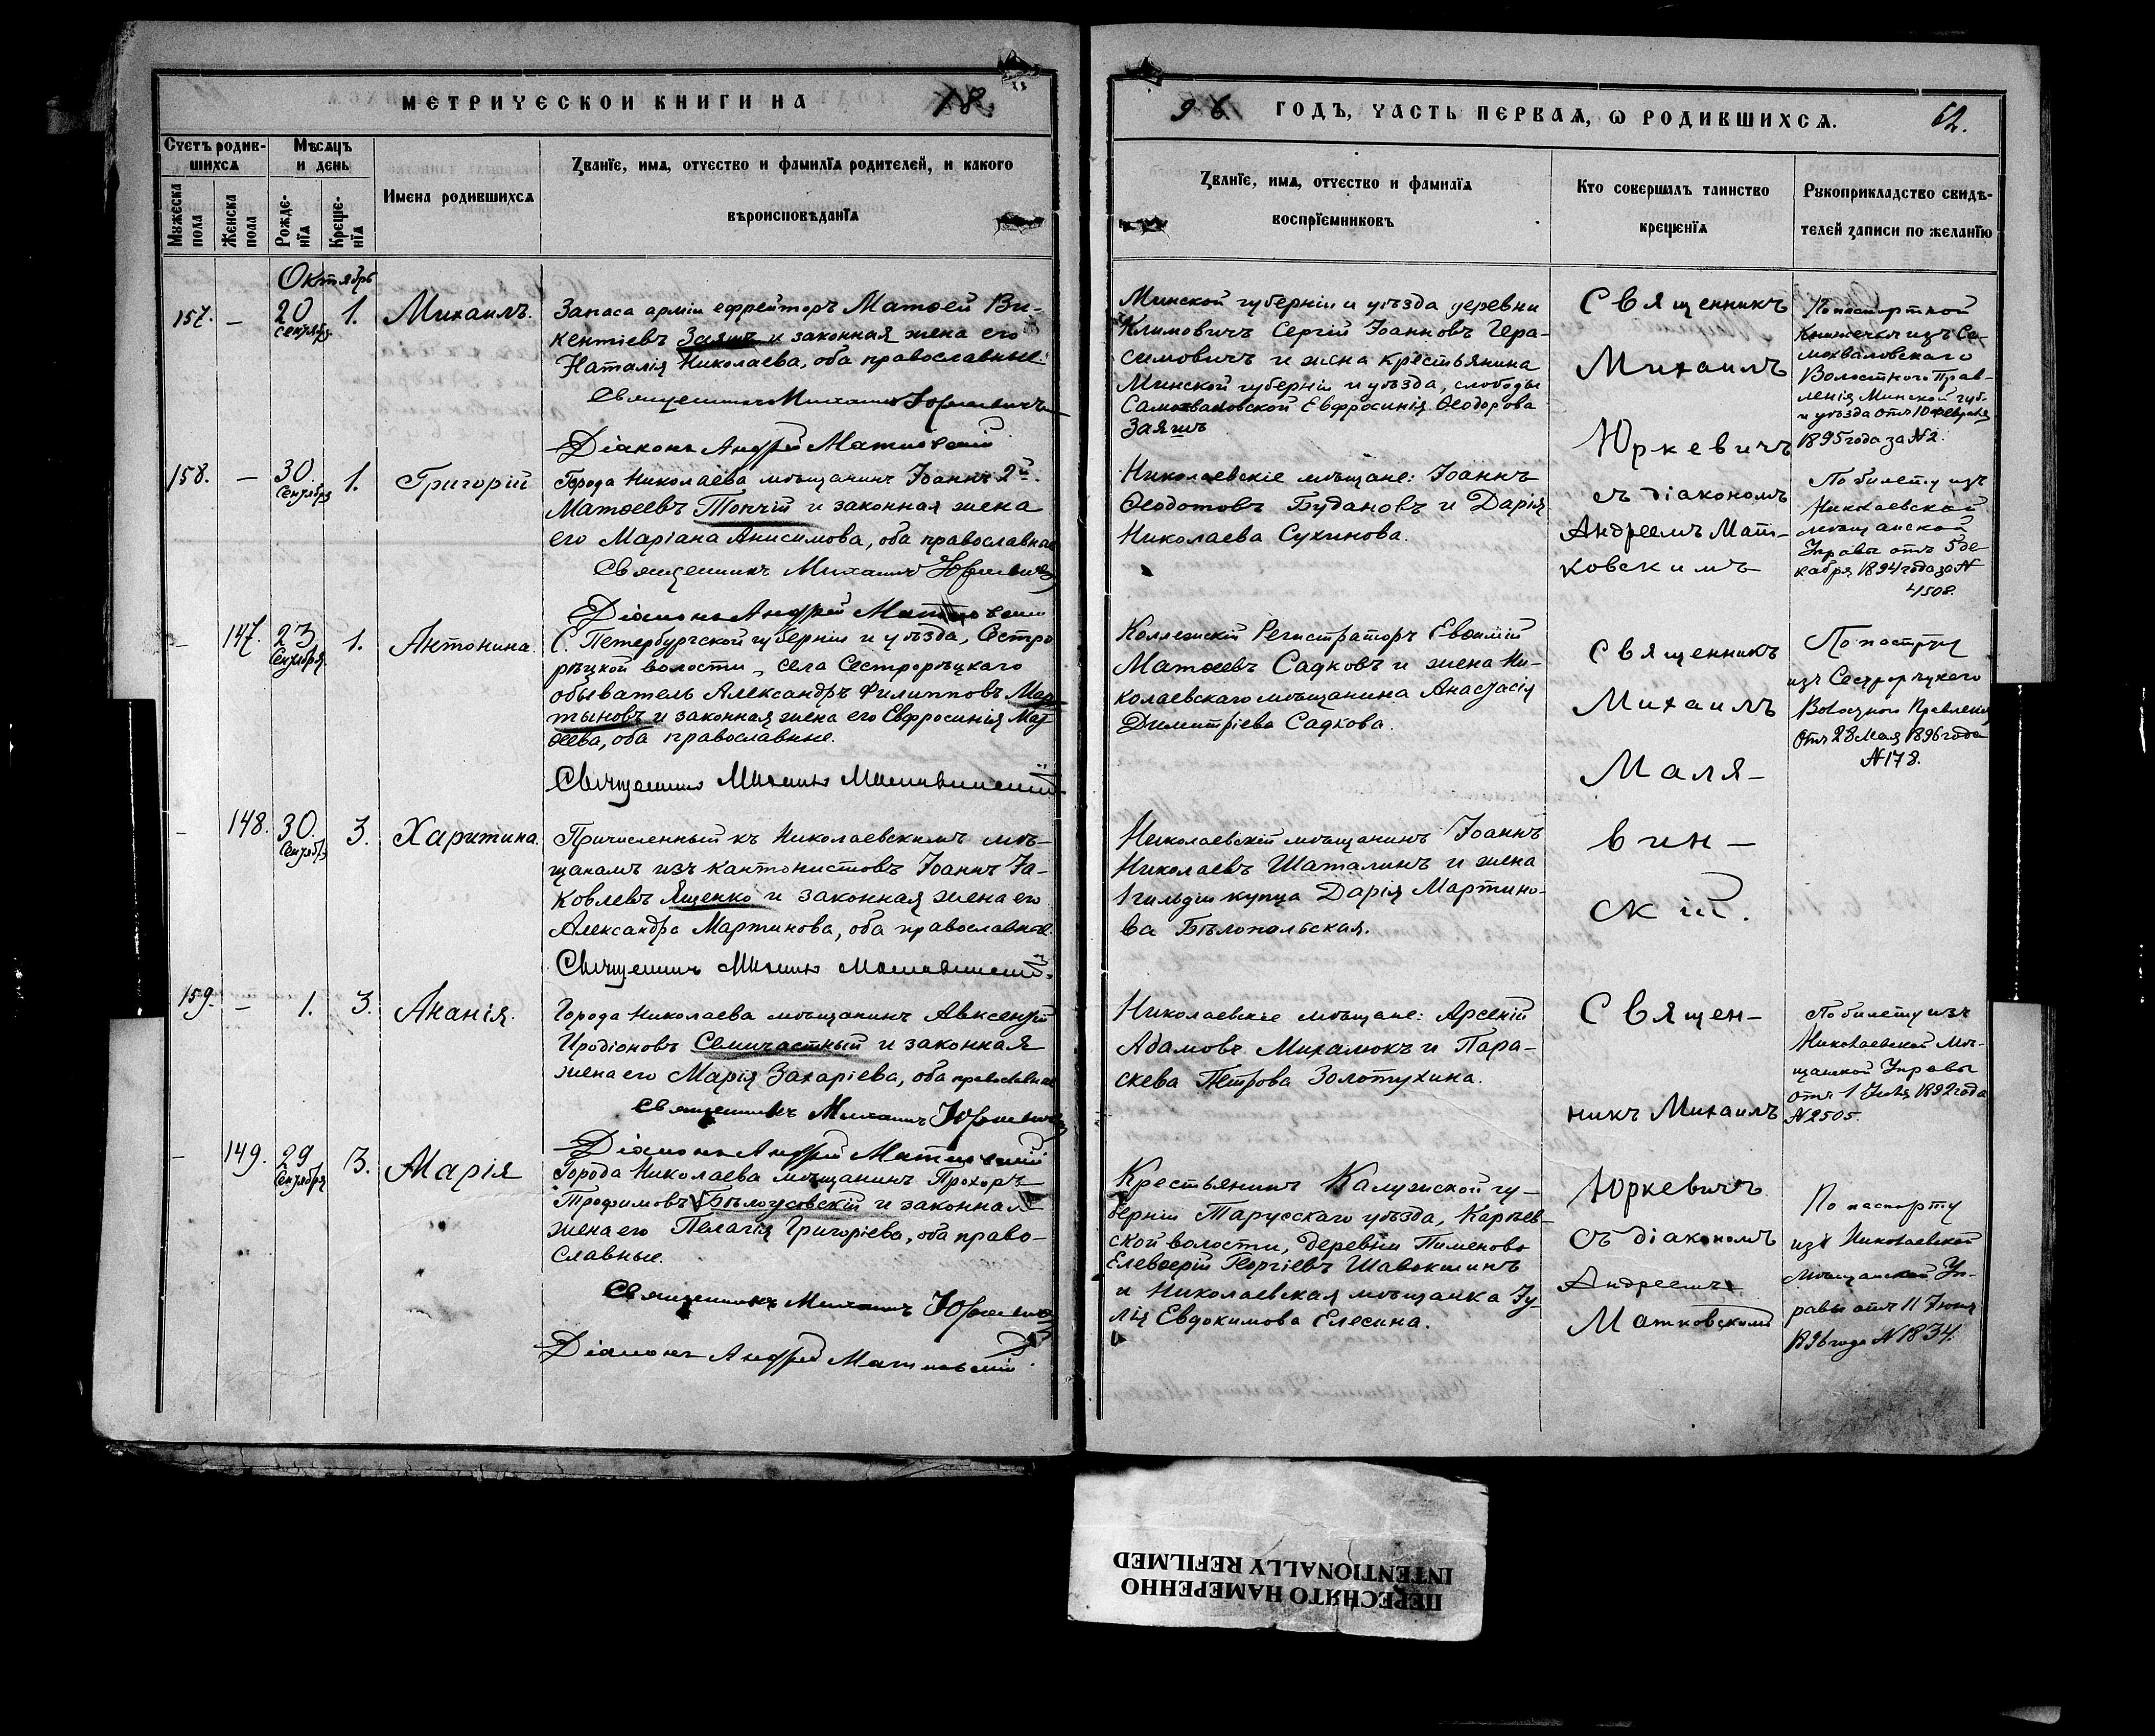 МЕТРИЧЕСКОЙ КНИГИ НА 18
96 ГОДЪ, ЧАСТЬ ПЕРВАѦ, Ѡ РОДИВШИХСѦ. 62.
Счетъ родив-
шихсѧ
Мужеска
пола
Женска
пола
Мѣсѧцъ
и день
Рожде-
нїѧ
Креще-
нїѧ
Имена родившихсѧ
Званїе, имѧ, отчество и фамилїѧ родителей, и какого
вѣроисповѣданїѧ
Званїе, имѧ, отчество и фамилїѧ
воспрїемниковъ
Кто совершалъ таинство
крещенїѧ
Рукоприкладство свидѣ-
телей записи по желанїю
Октябрь
157. — 20 Сентябр. 1. Михаилъ.
Запаса арміи ефрейторъ Матѳей Ви-
кентіевъ Заяшъ и законная жена его
Наталія Николаева, оба православные.
Священникъ Михаилъ Юркевичъ
Діаконъ Андрей Матковскій
Минской губерніи и уѣзда деревни
Климовичъ Сергій Іоанновъ Гера-
симовичъ и жена крестьянина
Минской губерніи и уѣзда, слободы
Самохваловской Евфросинія Ѳеодорова
Заяшъ
Священникъ
Михаилъ
Юркевичъ
съ діакономъ
Андреемъ Мат-
ковскимъ
По паспортной
книжечкѣ изъ Са-
мохваловскаго
Волостного Прав-
ленія Минской губ.
и уѣзда отъ 10 февраля
1895 года за № 2.
158. — 30 Сентября 1. Григорій
Города Николаева мѣщанинъ Іоаннъ 2й
Матѳеевъ Топчій и законная жена
его Маріана Анисимова, оба православные
Священникъ Михаилъ Юркевичъ
Діаконъ Андрей Матковскій
Николаевскіе мѣщане: Іоаннъ
Ѳеодотовъ Будановъ и Дарія
Николаева Сухинова.
По билету изъ
Николаевской
мѣщанской
Управы отъ 5 де-
кабря 1894 года за №
4508.
— 147. 23 Сентября 1. Антонина.
С. Петербургской губерніи и уѣзда, Сестро
рѣцкой волости, села Сестрорѣцкаго
обыватель Александръ Филипповъ Мар
тыновъ и законная жена его Евфросинія Мат
ѳеева, оба православные.
Священникъ Михаилъ Малявинскій
Коллежскій Регистраторъ Евѳимій
Матѳеевъ Садковъ и жена Ни-
колаевскаго мѣщанина Анастасія
Димитріева Садкова.
Священникъ
Михаилъ
Маля-
вин-
скій.
По паспорту
изъ Сестрорѣцкаго
Волостного Правленія
отъ 28 Мая 1896 года
№ 178.
— 148. 30. Сентябр. 3. Харитина.
Причисленный къ Николаевскимъ мѣ-
щанамъ изъ кантонистовъ Іоаннъ Іа-
ковлевъ Ященко и законная жена его
Александра Мартинова, оба православные.
Священникъ Михаилъ Малявинскій.
Николаевскій мѣщанинъ Іоаннъ
Николаевъ Шаталинъ и жена
1 гильдіи купца Дарія Мартино-
ва Бѣлопольская.
159. — 1. 3. Ананія.
Города Николаева мѣщанинъ Авксентій
Иродіоновъ Семичастный и законная
жена его Марія Захаріева, оба православные
Священникъ Михаилъ Юркевичъ
Діаконъ Андрей Матковскій
Николаевскіе мѣщане: Арсеній
Адамовъ Михалюкъ и Пара-
скева Петрова Золотухина.
Священ-
никъ Михаилъ
Юркевичъ
съ діакономъ
Андреемъ
Матковскимъ
По билету изъ
Николаевской Мѣ-
щанской Управы
отъ 1 Іюля 1892 года
№ 2505.
— 149. 29 Сентября 3. Марія
Города Николаева мѣщанинъ Прохоръ
Трофимовъ Бѣлоусовскій и законная
жена его Пелагія Григоріева, оба право-
славные.
Священникъ Михаилъ Юркевичъ
Діаконъ Андрей Матковскій
Крестьянинъ Калужской гу-
берніи Тарусскаго уѣзда, Карпев-
ской волости, деревни Пименово
Елевѳерій Георгіевъ Шавокшинъ
и Николаевская мѣщанка Іу-
лія Евдокимова Елесина.
По паспорту
изъ Николаевской
Мѣщанской Уп-
равы отъ 11 Іюня
1896 года № 1834.
ПЕРЕСНЯТО НАМЕРЕННО
INTENTIONALLY REFILMED